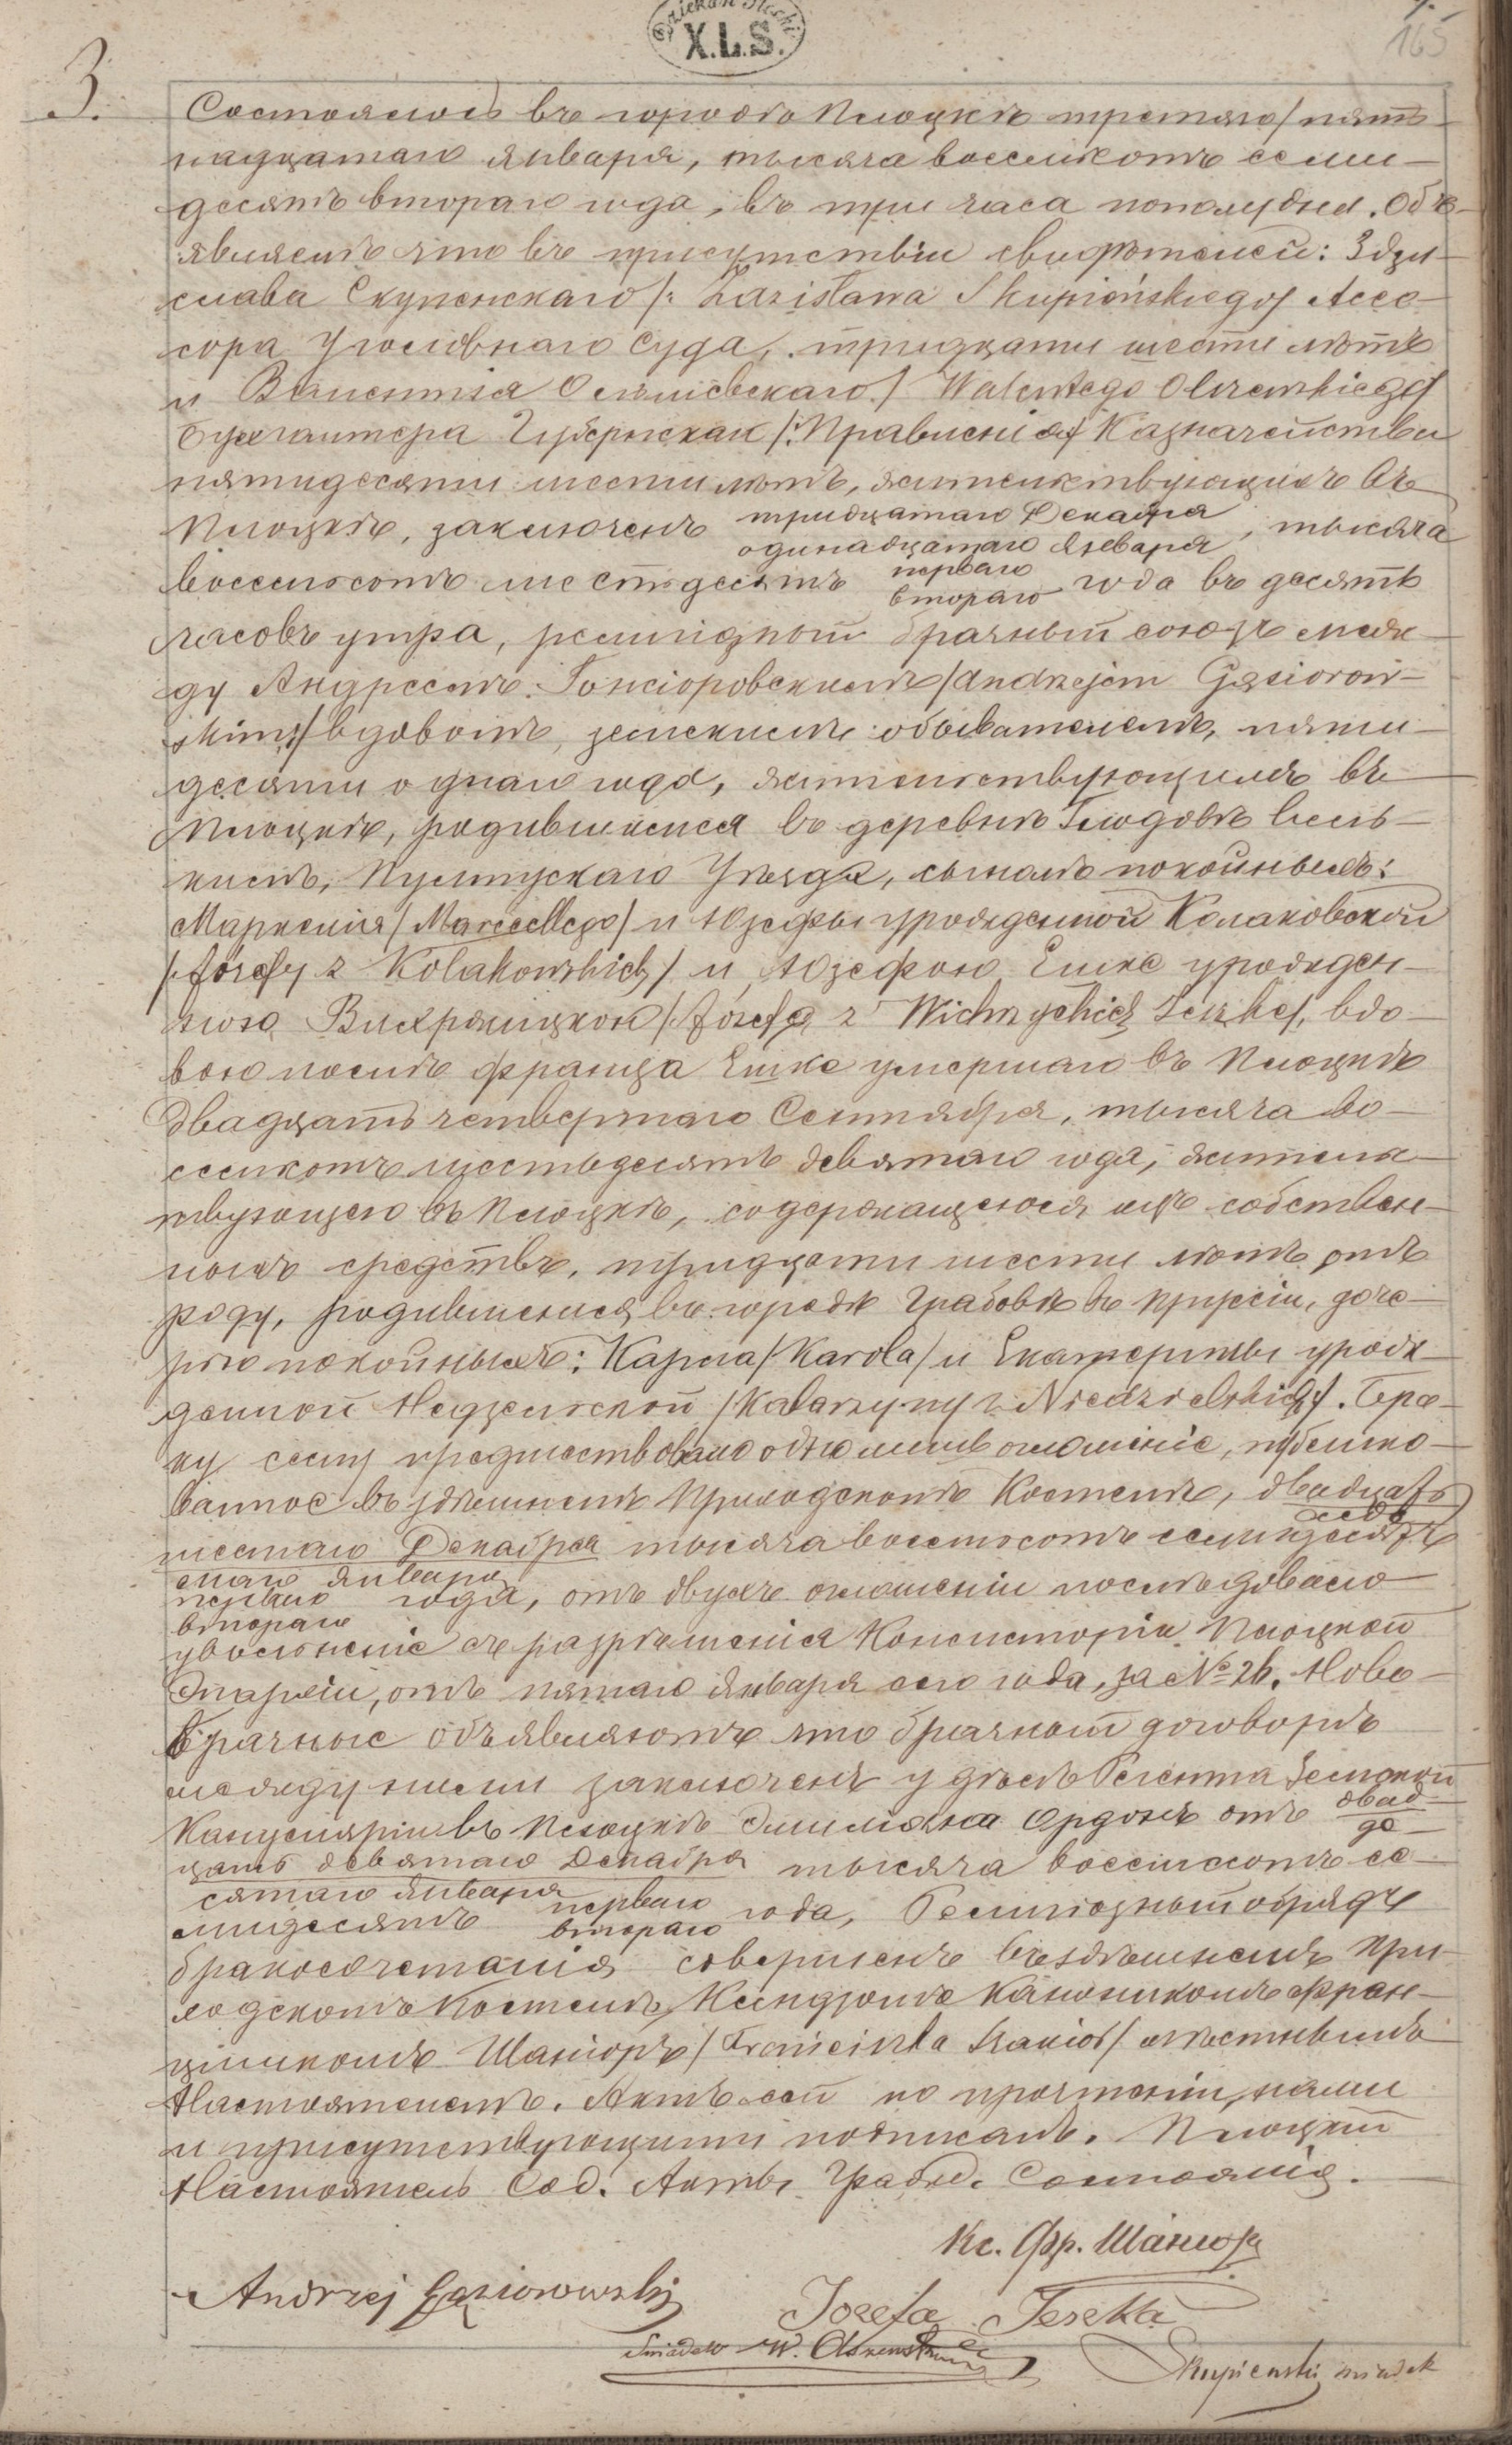 Dziekan Płocki
X.L.S.
165
3.
Состоялось въ городѣ Плоцкѣ третяго/пят-
надцатаго Января, тысяча восемьсотъ семи-
десятъ втораго года, въ три часа пополудни. Объ-
являемъ что въ присутствіи свидѣтелей: Здзи-
слава Скупенскаго /: Zdzisława Skupieńskiego/ Ассе-
сора Уголовнаго Суда, тридцати шести лѣтъ
и Валентія Ольшевскаго / Walentego Olszewskiego/
Бухгалтера Губернскаго /: Правленія/ Казначейства
пятидесяти шести лѣтъ, жительствующихъ въ
Плоцкѣ, заключенъ тридцатаго Декабря, тысяча
одинадцатаго Января
восемьсотъ шестьдесятъ перваго года въ десять
втораго
часовъ утра, религіозный брачный союзъ меж-
ду Андреемъ Гонсіоровскимъ /Andrzejem Gąsiorow-
skim/ вдовомъ, земскимъ обывателемъ, пяти-
десяти однаго года, жительствующимъ въ
Плоцкѣ, родившимся въ деревнѣ вель-
кимъ, Пултускаго Уѣзда, сыномъ покойныхъ:
Марцелія /Marcellego/ и Юзефы урожденной Колаковской
/Józefy z Kolakowskich/ и Юзефою Ешке урожден-
ною /Józefą z Wichrzyckich Jeszke/, вдо-
вою послѣ Франца Ешке умершаго въ Плоцкѣ
двадцать четвертаго Сентября, тысяча во-
семьсотъ шестьдесятъ девятаго года, житель-
твующею въ Плоцкѣ, содержащеюся изъ собствен-
ныхъ средствъ, тридцати шести лѣтъ отъ
роду, родившеюся въ городѣ Грабовѣ въ Пруссіи, доче-
рью покойныхъ: Карла /Karola/ и Екатерины урож-
денной Недзельской /Katarzyny z Niedzielskich/. Бра-
ку сему предшествовало одно оглашеніе, публико-
ванное въ здѣшнемъ Приходскомъ Костелѣ, двадцать
седь-
шестаго Декабря тысяча восемьсотъ семьдесятъ
маго Января
перваго года, отъ двухъ оглашеніи послѣдовало
втораго
увольненіе съ разрѣшенія Консисторіи Плоцкой
Эпархіи, отъ пятаго Января сего года, за № 26. Ново-
брачные объявляютъ что брачный договоръ
между ними заключенъ у Регента Земской
Канцеляріи въ Плоцкѣ Ордонъ отъ двад-
де-
цать девятаго Декабря тысяча восемьсотъ се-
сятаго Января
мидесятъ перваго года, Религіозный обрядъ
втораго
бракосочетанія совершенъ въ здѣшнемъ При-
ходскомъ Костелѣ, Ксендзомъ Каноникомъ Фран-
цишкомъ Шаніоръ /Franciszka Szanior/ мѣстнымъ
Настоятелемъ. Актъ сей по прочтеніи, нами
и присутствующими подписанъ. Плоцкій
Настоятель Сод. Акты Гражд. Состоянія.
Кс. Фр. Шаніоръ
Andrzej Gąsiorowski
Jozefa Jeszka
Świadek W. Olszewski
Skupieński świadek